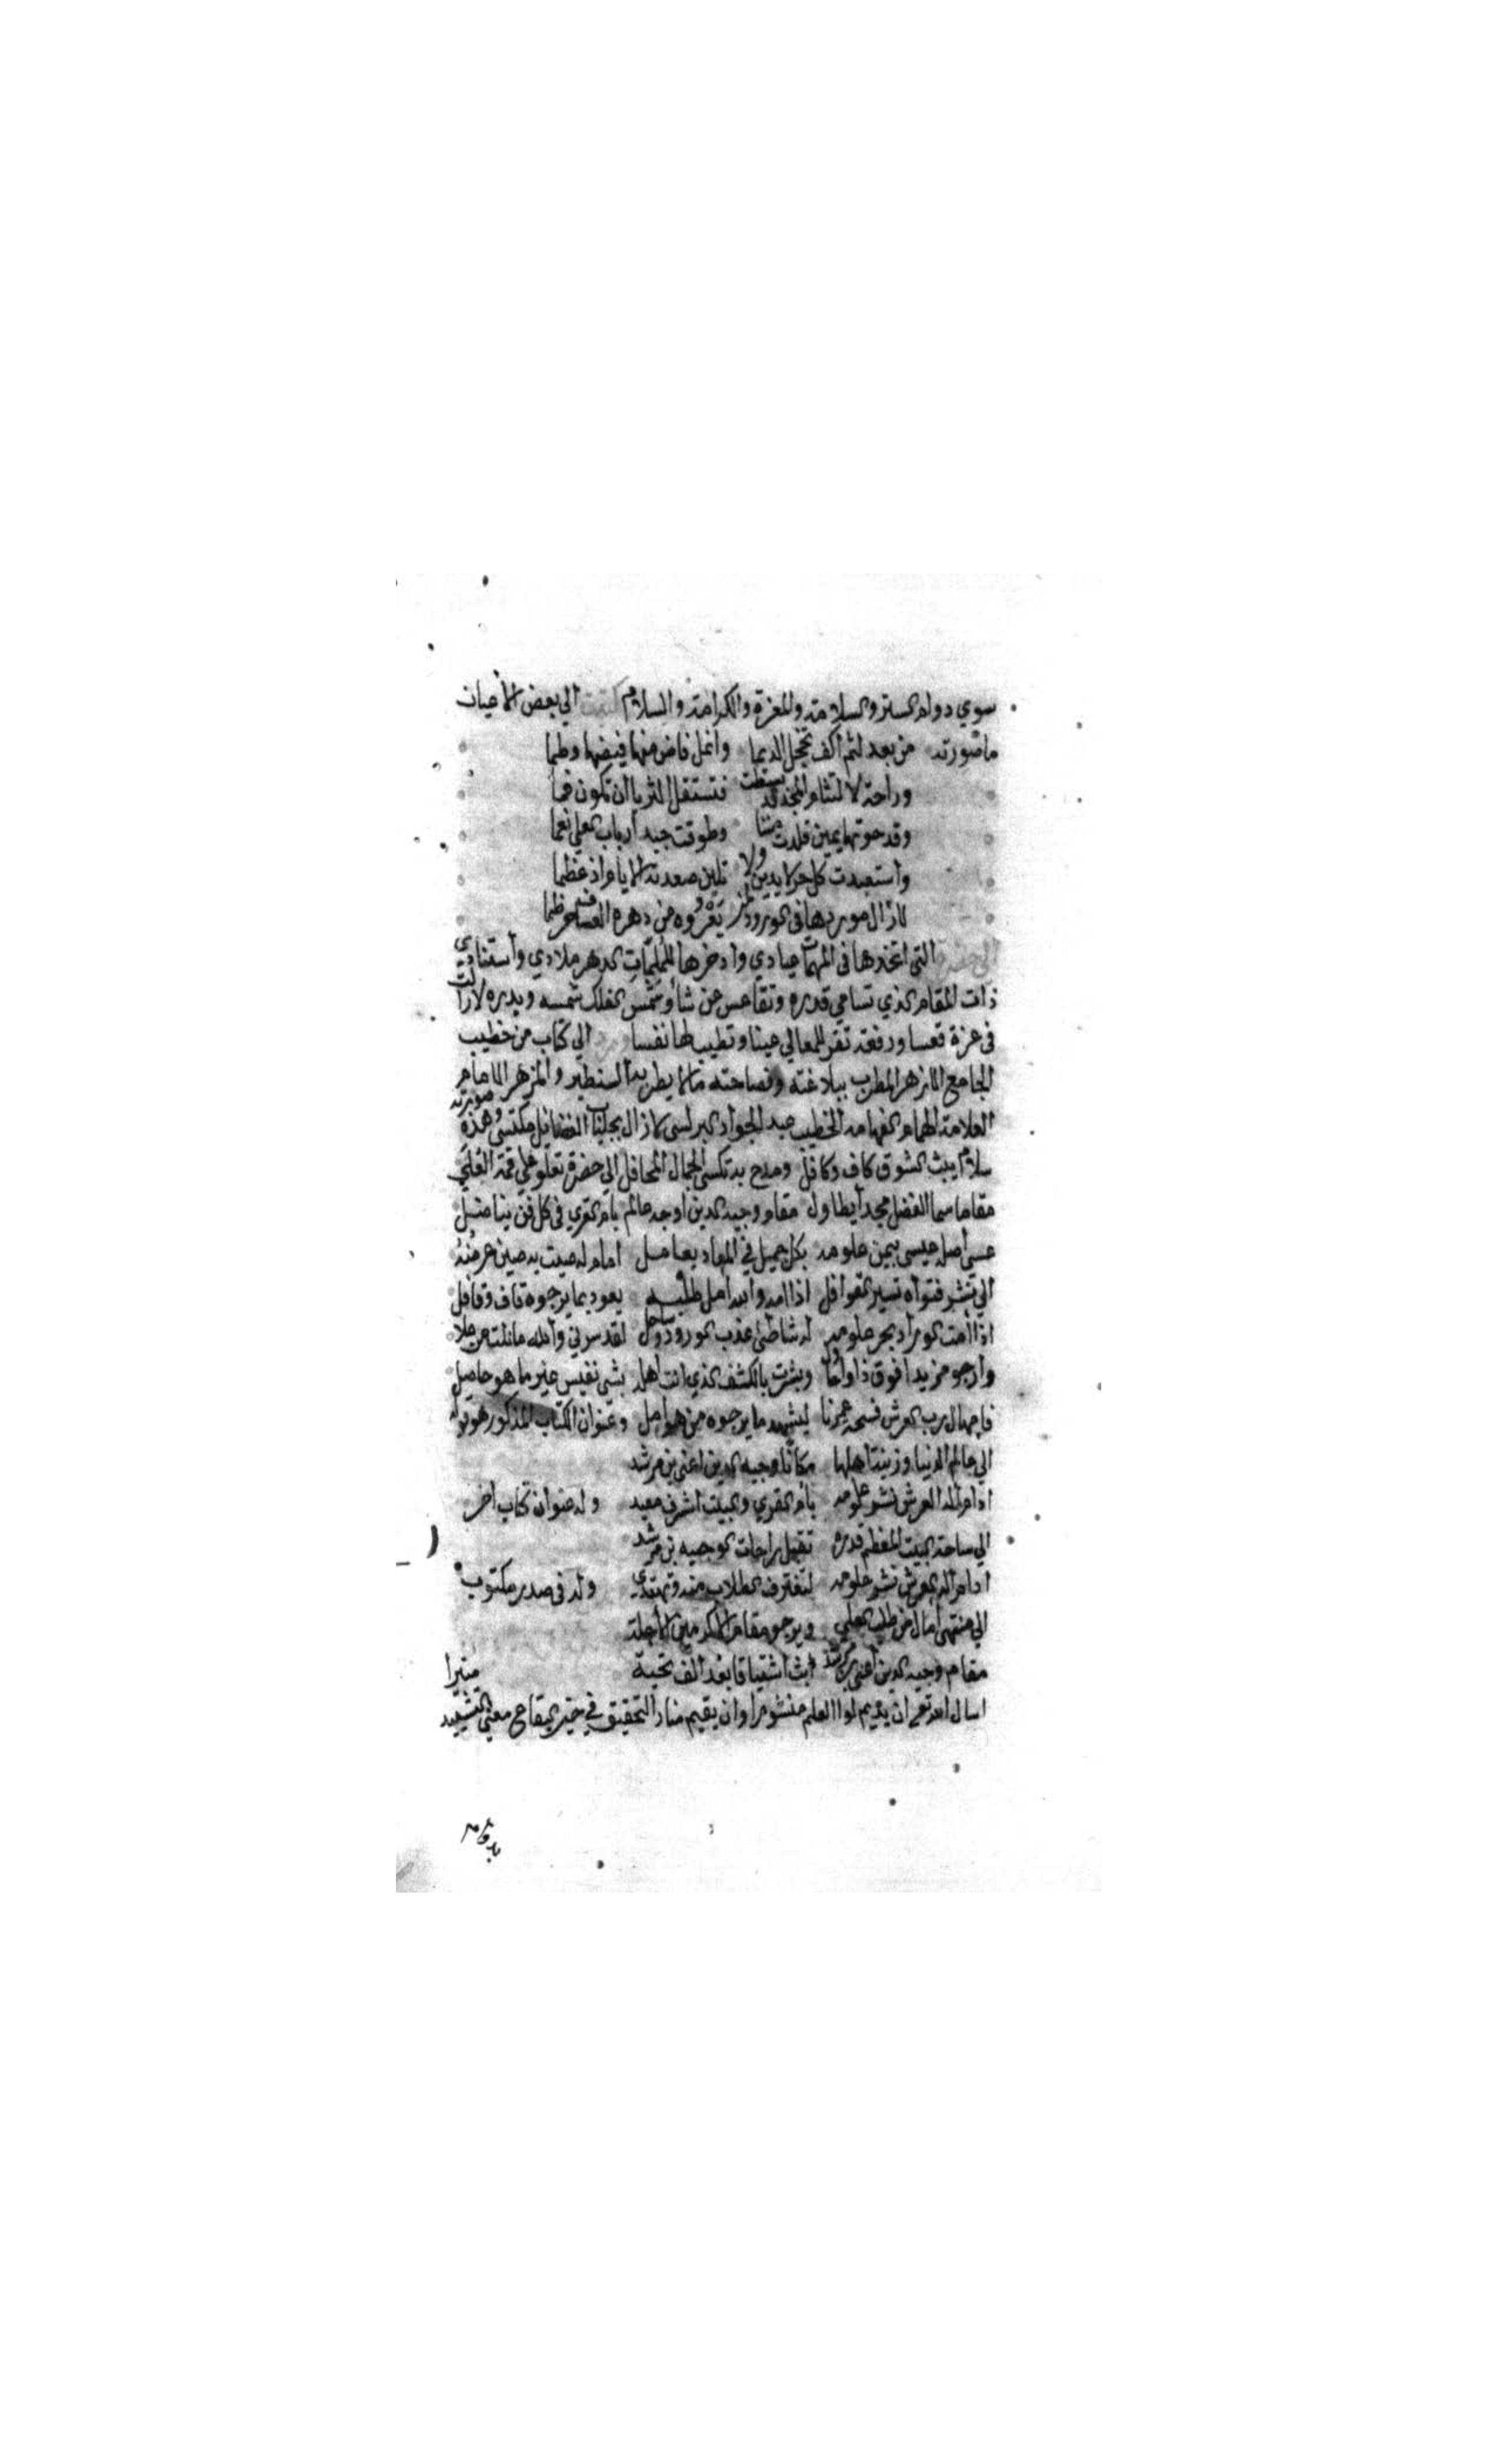 سوي دوام الستر والسلامة والمعزة والكرامة والسلام كتبت الي بعض الأعيان
ما صورته من بعد لثم أكف تخجل الديما وانمل فاض منها فيضها وطما
وراحة لالتثام المجد قد بسطت فتستقل الثريا أن تكون فما
وقد حوتها يمين قلدت مننا وطوقت جيد أرباب العلي نعما
واستعبدت كل حر لا يدين ولا تلين صعدته الأيام اذ عظما
لازال موردها في الورود لمن يعروه من دهره العساف حر ظما
الي حضرة التي اتخذها في المهمات عيادي وادخرها لملمات الدهر ملادي وأستنادي
ذات المقام الذي تسامي قدره وتقاعس عن شأو شمس الفلك شمسه وبدره لازالت
في عزة قعسا ورفعة تقر للمعالي عينا وتطيب لها نفسا ورد الي كتاب من خطيب
الجامع الازهر المطرب ببلاغته وفصاحته مالا يطرب به السنطير والمزهر الامام
العلامة الهمام الفهامة الخطيب عبد الجواد البرلسي لازال بجلباب الفضائل مكتسي وهذه صورته
سلام يبث الشوق كاف وكافل ومدح به تكسي الجمال المحافل الي حضرة تعلو علي قمة العلي
مقاما سما الفضل مجدا يطاول مقام وجيه الدين اوجد عالم بام القري في كل فن يناضل
عسي أصل عيسي بيمن علومه بكل جميل في المعاد يعامل امام له صيت به صين عرضه
الي نشر فتواه تسير القوافل اذا امه والله امل طلبه يعود بما يرجوه قاف وقافل
اذا أمت الوراد بحر علومه له شاطئ عذب الورود وساحل لقد سرني والله ما نلت من علا
وارجو مزيدا فوق ذا وأحاول وبشرت بالكشف الذي انت اهله بشي نفيس غير ما هو حاصل
فامهال رب العرش فسحة عمرنا ليشهد ما يرجوه من هو امل وعنوان الكتاب المذكور هو قوله
الي عالم الدنيا وزينة اهلها مكانا وجيه الدين اعني بن مرشد
ادام اله العرش نشر علومه بأم القري والبيت اشرف معبد وله عنوان كتاب اخر
الي ساحة البيت المعظم قدره تقبل راحات الوجيه بن مرشد
ادام اله العرش نشر علومه لتغترف الطلاب منه وتهتدي وله في صدر مكتوب
الي منتهي آمال من طلب العلي ويرجو مقام الأكرمين الأجلة
مقام وجيه الدين اعني بن مرشد ابث اشتياقا بعد الف تحية
اسال الله تعالى ان يديم لواء العلم منشورا وان يقيم منار التحقيق في خير البقاع معني التشييد منيرا